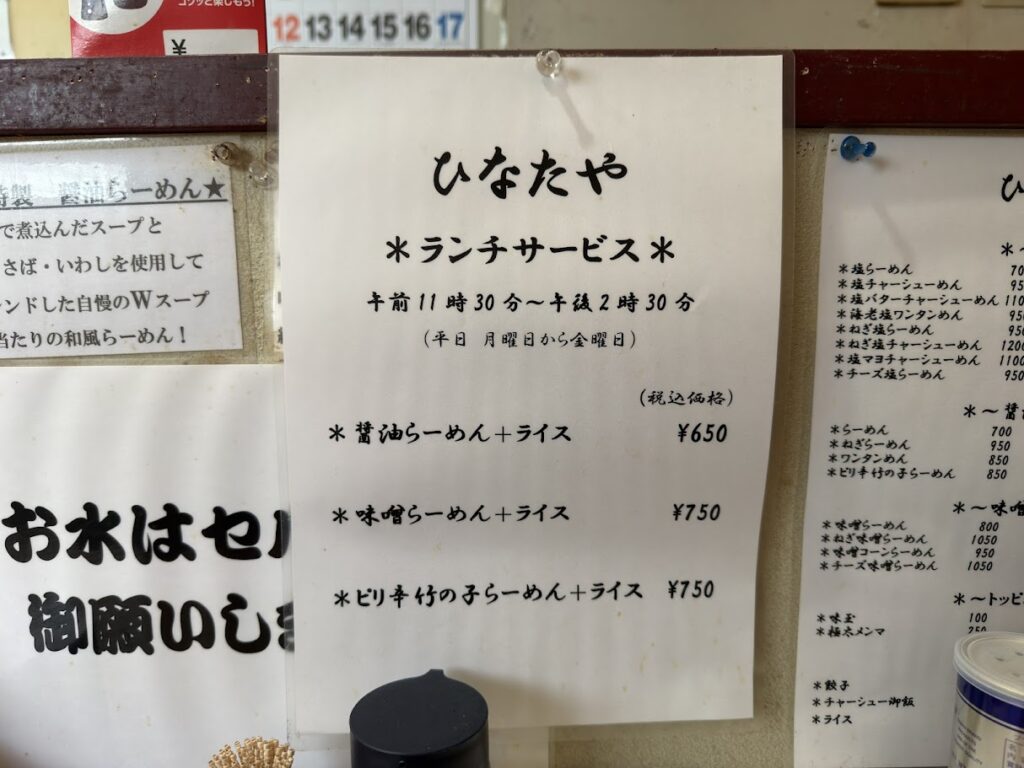 コクッと楽しもう!
¥
12 13 14 15 16 17
特製 醤油らーめん★
で煮込んだスープと
さば・いわしを使用して
ンドした自慢のWスープ
当たりの和風らーめん!
お水はセル
御願いしま
ひなたや
*ランチサービス*
午前11時30分~午後2時30分
(平日 月曜日から金曜日)
(税込価格)
*醤油らーめん+ライス ¥650
*味噌らーめん+ライス ¥750
*ピリ辛竹の子らーめん+ライス ¥750
ひ
*~
*塩らーめん 70
*塩チャーシューめん 95
*塩バターチャーシューめん 110
*海老塩ワンタンめん 950
*ねぎ塩らーめん 950
*ねぎ塩チャーシューめん 1200
*塩マヨチャーシューめん 1100
*チーズ塩らーめん 950
*~醤
*らーめん 700
*ねぎらーめん 950
*ワンタンめん 850
*ピリ辛竹の子らーめん 850
*~味噌
*味噌らーめん 800
*ねぎ味噌らーめん 1050
*味噌コーンらーめん 950
*チーズ味噌らーめん 1050
*~トッピ
*味玉 100
*極太メンマ 250
*餃子
*チャーシュー御飯
*ライス